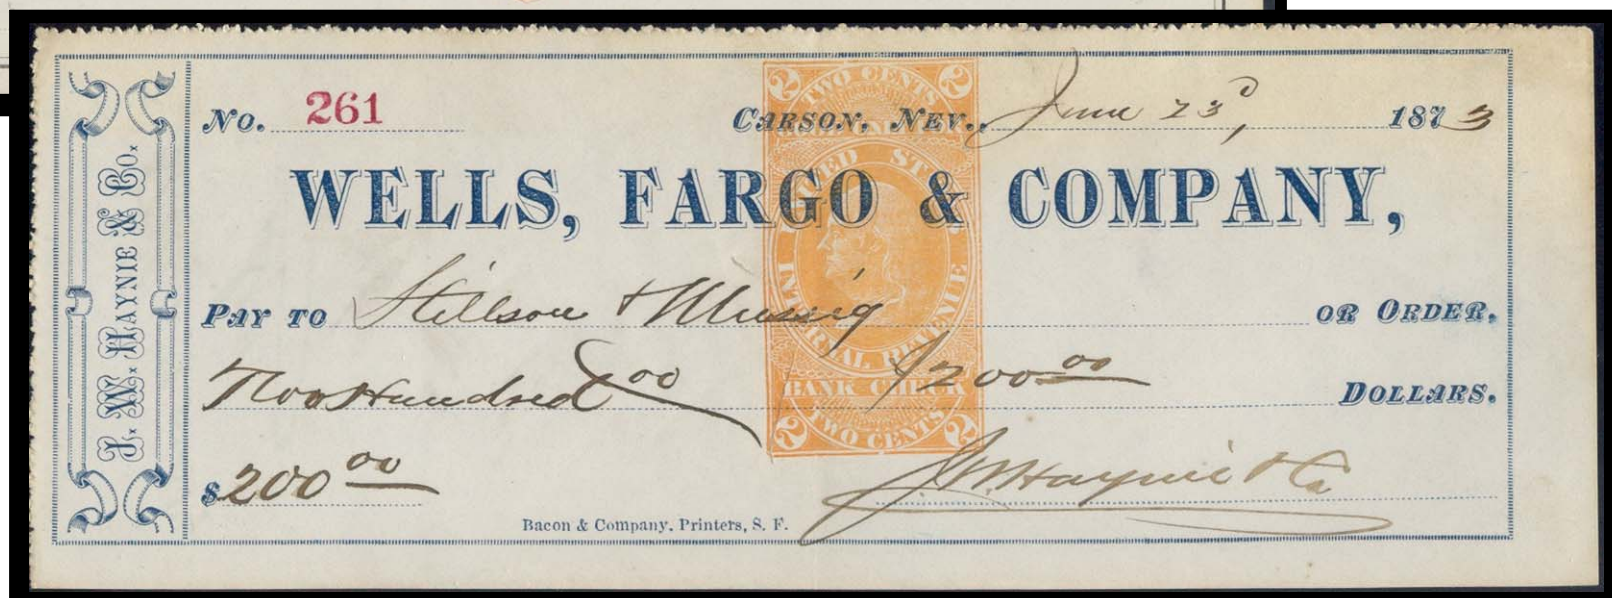 J. W. Haynie & Co.
No. 261 Carson, Nev., June 23d, 1873
WELLS, FARGO & COMPANY,
Pay to Stillson & or Order.
Two Hundred 00 $200 00 Dollars.
$200 00
J W Haynie & Co
Bacon & Company, Printers, S. F.
2 TWO CENTS 2
UNITED ST
INTERNAL REVENUE
BANK CHECK
2 TWO CENTS 2